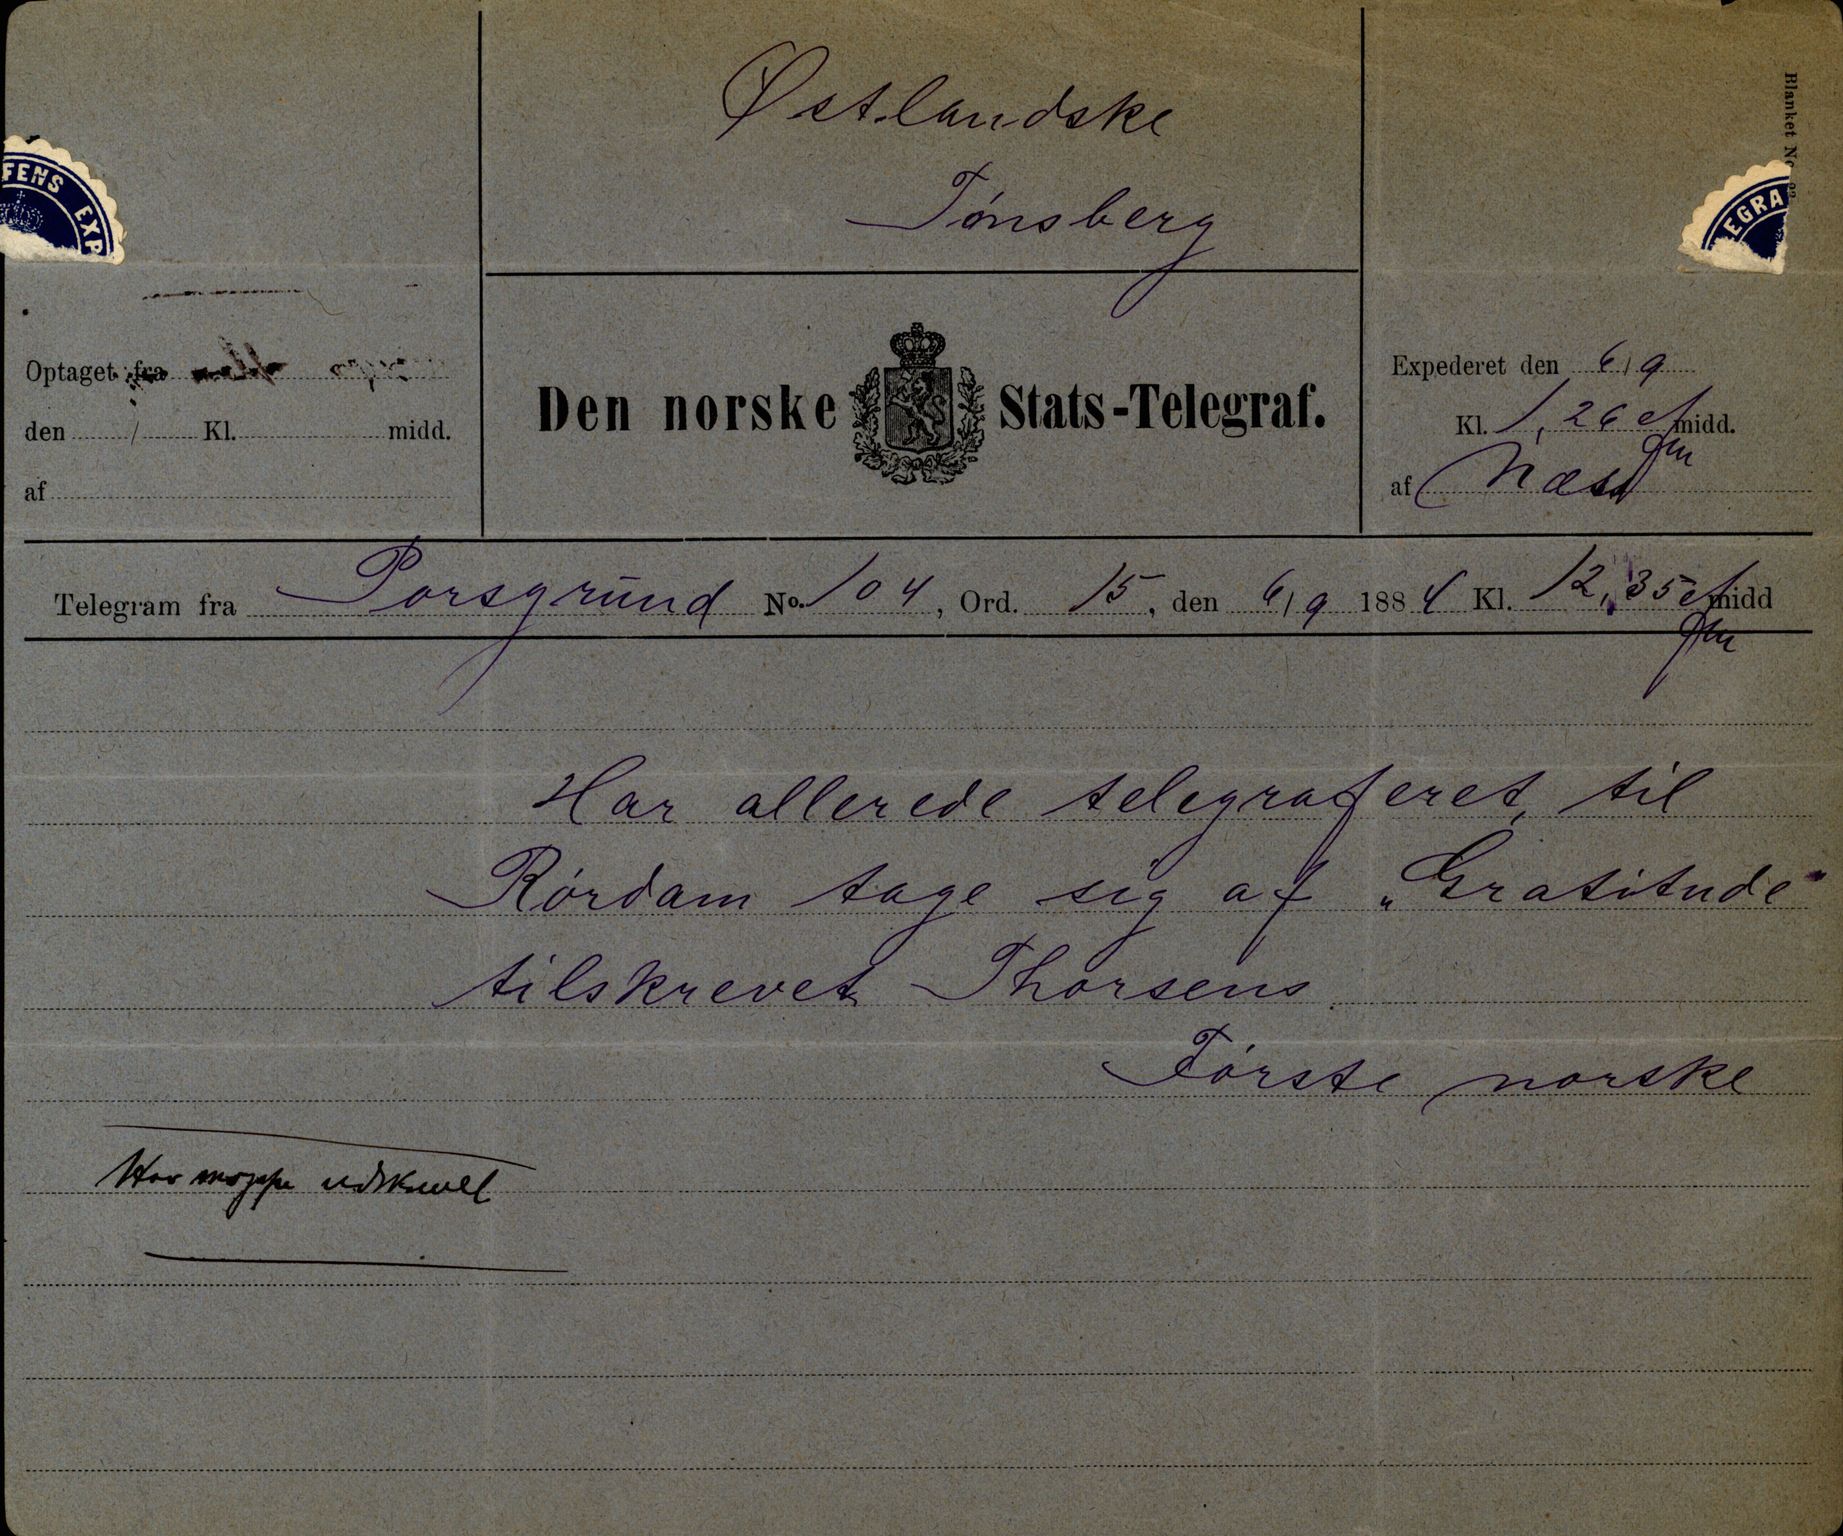 Østlandske
Tønsberg
Blanket No
FENS EXP
EGRA
Optaget fra
den Kl. midd.
af
Den norske Stats-Telegraf.
Expederet den 6/9
Kl. 1,26 Efmidd.
af Næss
Telegram fra Porsgrund No. 104, Ord. 15, den 6/9 1884 Kl. 12,35 Efmidd
Har allerede telegraferet til
Rørdam tage sig af „Gratitude"
tilskrevet Thorsens
Første norske